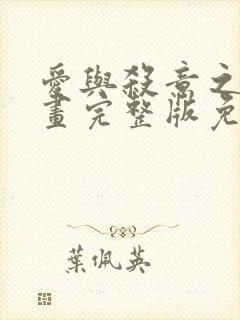 愛與殺意之
畫完整版免
葉佩英